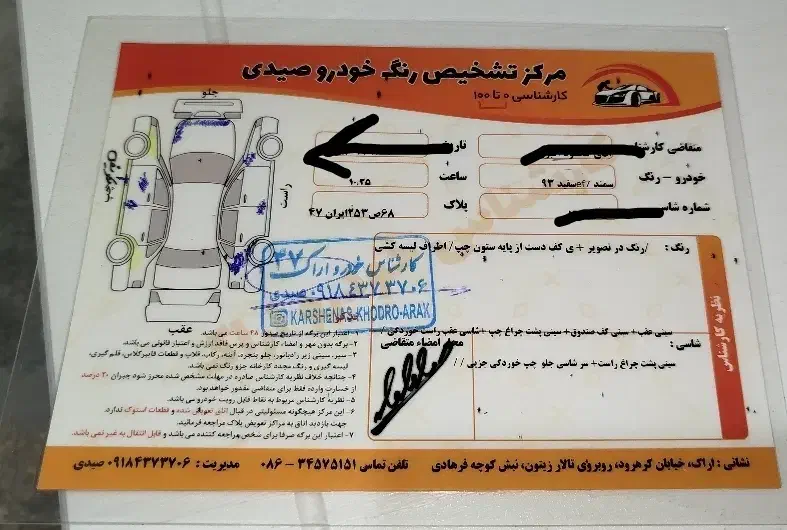 مرکز تشخیص رنگ خودرو صیدی
کارشناسی ۰ تا ۱۰۰
جلو
راست
عقب
متقاضی کارشنا
خودرو - رنگ
سمند /ef سفید ۹۳
ساعت
۱۰:۲۵
شماره شاس
پلاک
۶۸ص۲۵۳ایران ۴۷
رنگ : /رنگ در تصویر + ی کف دست از پایه ستون چپ/ اطراف لیسه کشی
کارشناس خودرو اراک ۳۷
۰۹۱۸۴۳۷۳۷۰۶ صیدی
KARSHENAS-KHODRO-ARAK
نظریه کارشناس
شاسی : سینی عقب + سینی کف صندوق + سینی پشت چراغ چپ + شاسی عقب راست خوردگی /
سینی پشت چراغ راست + سر شاسی جلو چپ خوردگی جزیی //
محل امضاء متقاضی
۱- اعتبار این برگه از تاریخ صدور ۴۸ ساعت می باشد.
۲- برگه بدون مهر و امضاء کارشناس و پرس فاقد ارزش و اعتبار قانونی می باشد.
۳- سپر، سینی زیر رادیاتور، جلو پنجره، آینه، رکاب، قلاب و قطعات فایبرگلاس، قلم گیری،
لیسه گیری و رنگ مجدد کارخانه جزو رنگ نمی باشد.
۴- چنانچه خلاف نظریه کارشناس صادره در مهلت مشخص شده محرز شود جبران ۳۰ درصد
از خسارت وارده فقط برای متقاضی مقدور خواهد بود.
۵- نظریه کارشناس مربوط به نقاط قابل رویت خودرو می باشد.
۶- این مرکز هیچگونه مسئولیتی در قبال اتاق تعویض شده و قطعات استوک ندارد.
جهت بازدید اتاق به مراکز تعویض پلاک مراجعه فرمائید.
۷- اعتبار این برگه صرفا برای شخص مراجعه کننده می باشد و قابل انتقال به غیر نمی باشد.
نشانی : اراک، خیابان کرهرود، روبروی تالار زیتون، نبش کوچه فرهادی
تلفن تماس ۳۴۵۷۵۱۵۱ - ۰۸۶
مدیریت : ۰۹۱۸۴۳۷۳۷۰۶ صیدی